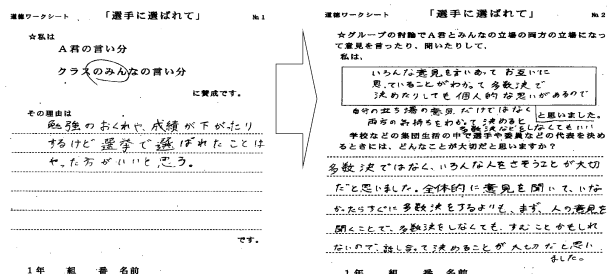 道徳ワークシート 「選手に選ばれて」 №1
☆私は
A君の言い分
クラスのみんなの言い分
に賛成です。
その理由は
勉強のおくれや、成績が下がったり
するけど選挙で選ばれたことは
やった方がいいと思う。
です。
1年 組 番 名前
道徳ワークシート 「選手に選ばれて」 №2
☆グループの討論でA君とみんなの立場の両方の立場になっ
て意見を言ったり、聞いたりして、
私は、
いろんな意見を言いあって お互いに
思っていることがわかって 多数決で
決めたりしても個人的な思いがあるので
自分の立ち場の意見だけではなく
両方の気持ちをわかって 決めると
多数決などをしなくてもいい
と思いました。
学校などの集団生活の中で選手や委員などの代表を決め
るときには、どんなことが大切だと思いますか?
多数決ではなく、いろんな人をさそうことが大切
だと思いました。全体的に意見を聞いて、いな
かったらすぐに多数決をするよりも、まず、人の意見を
聞くことで、多数決をしなくても、すむことかもしれ
ないので、話し合って決めることが大切だと思い
ました。
1年 組 番 名前